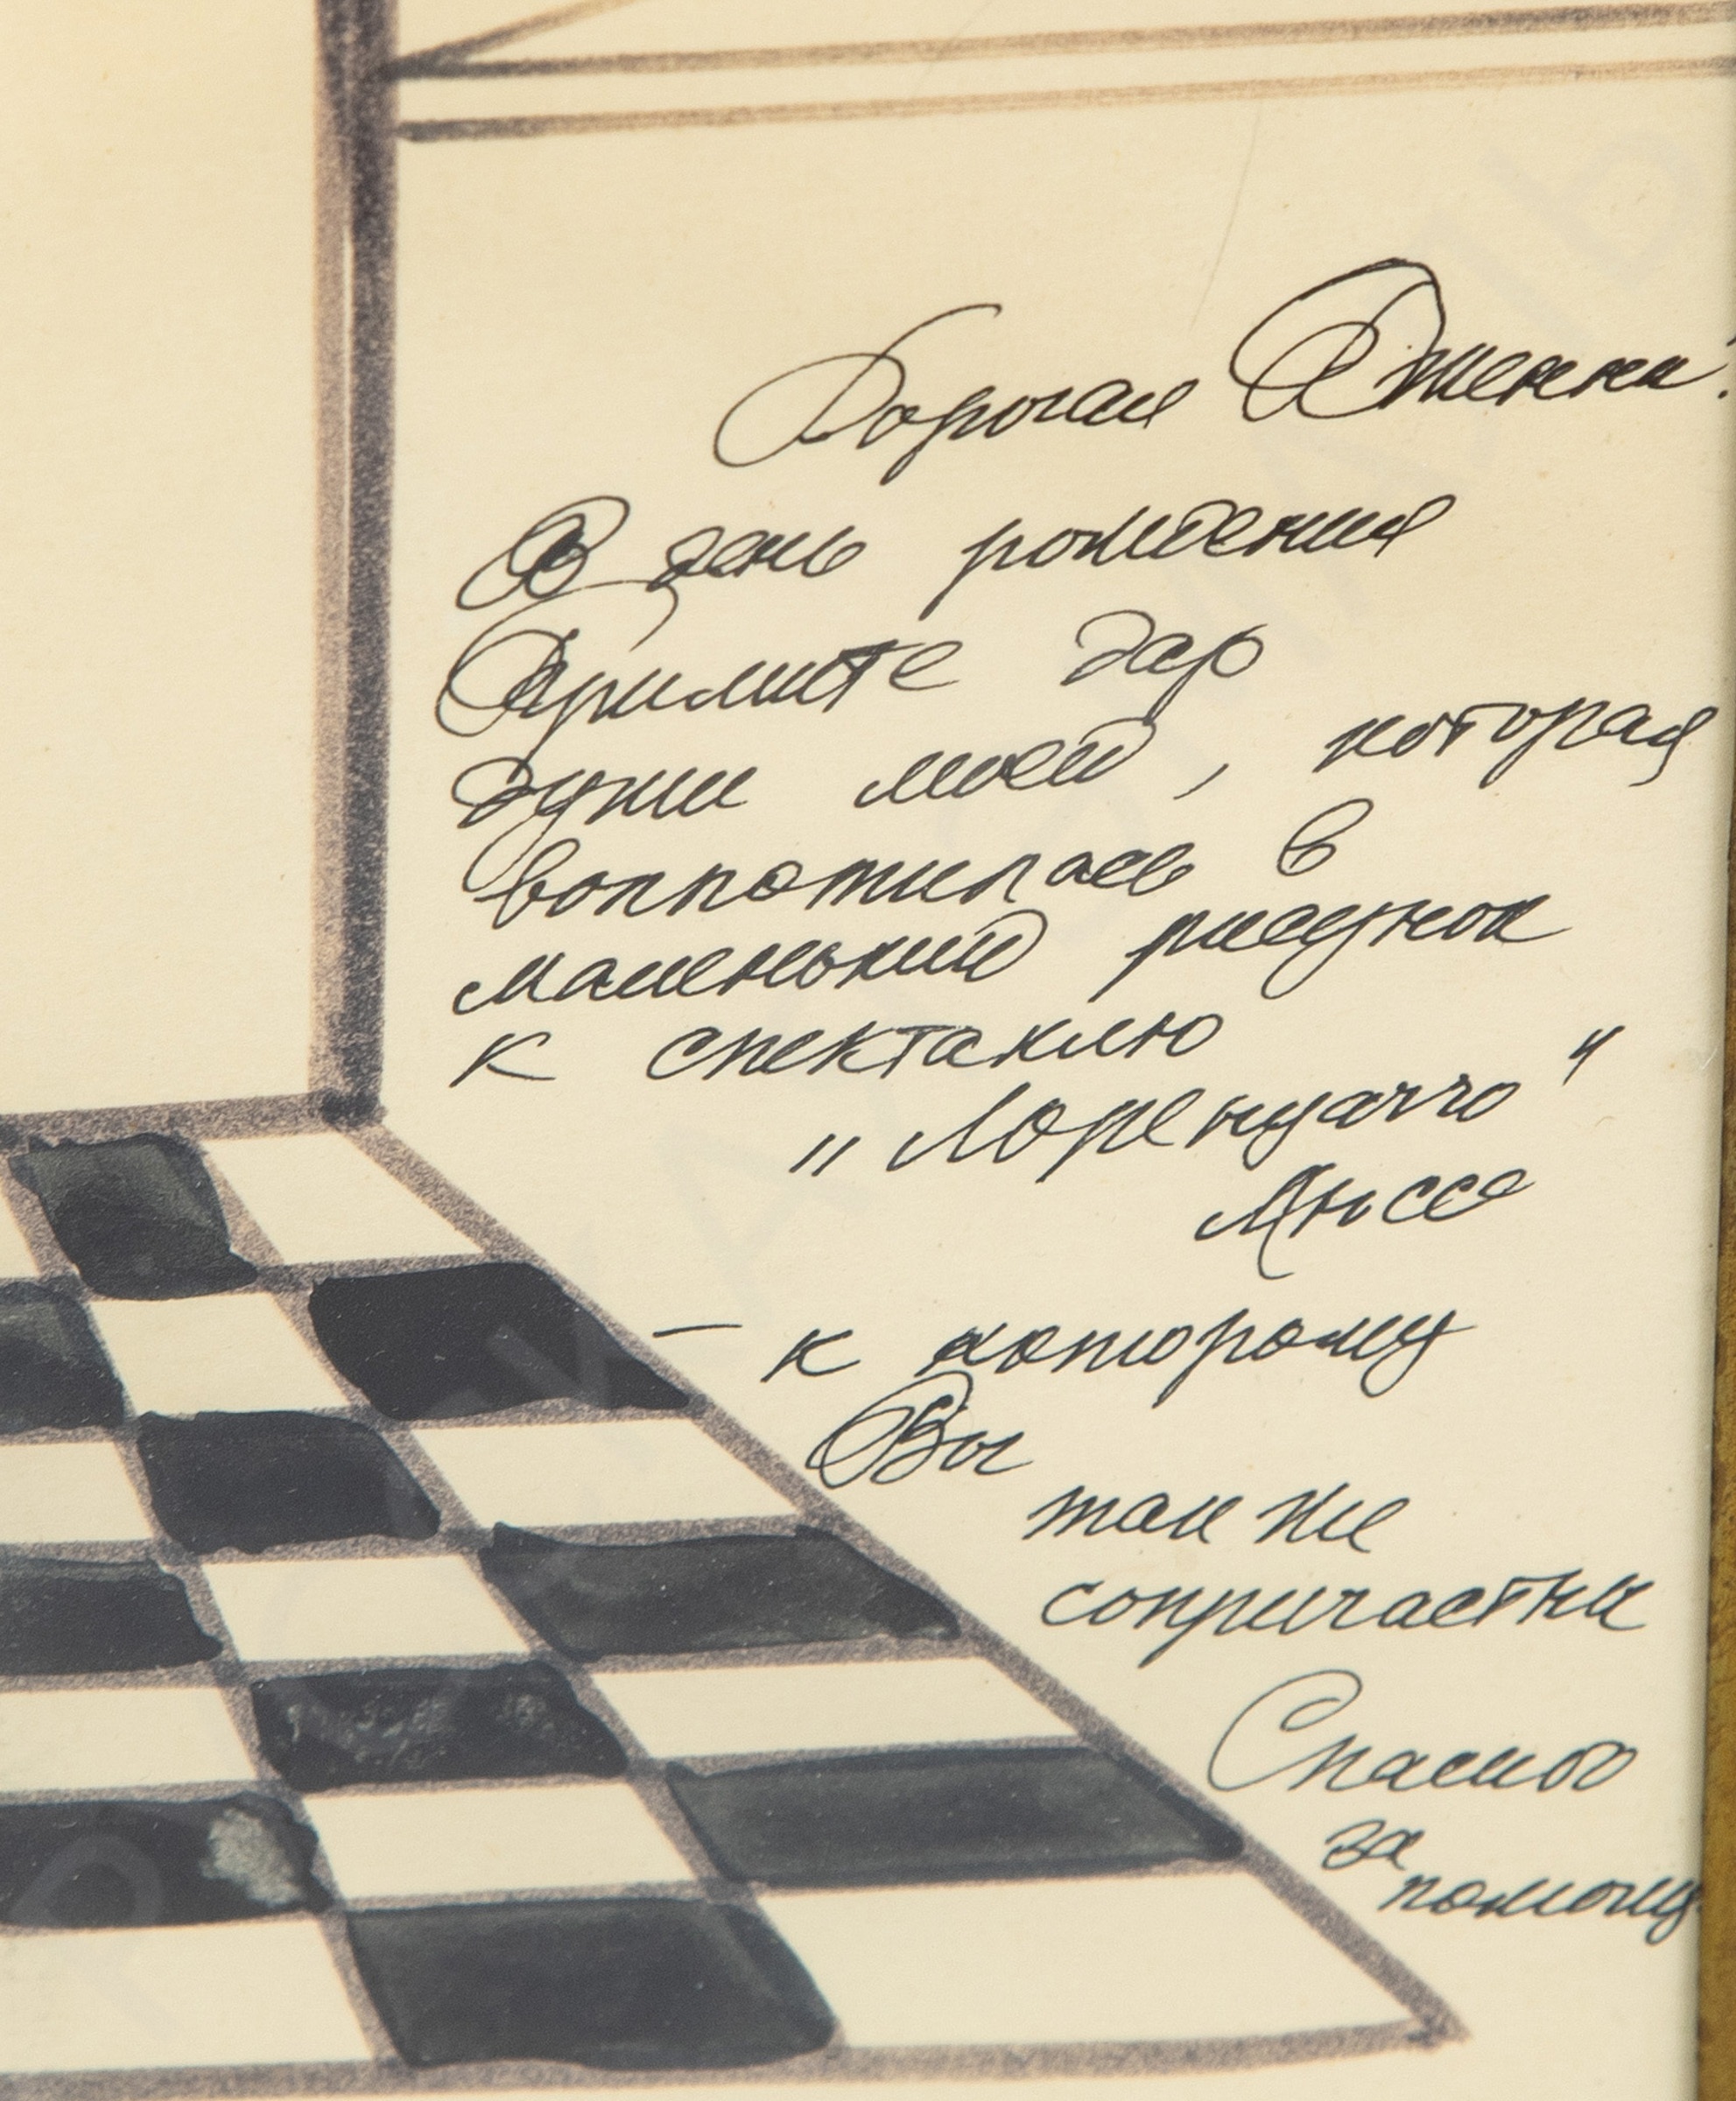 Дорогая Дженни!
В день рождения
Примите дар
души моей, которая
воплотилась в
маленький рисунок
к спектаклю
"Лорензаччо"
Мюссе
— к которому
Вы
так же
сопричастны
Спасибо
за
помощь